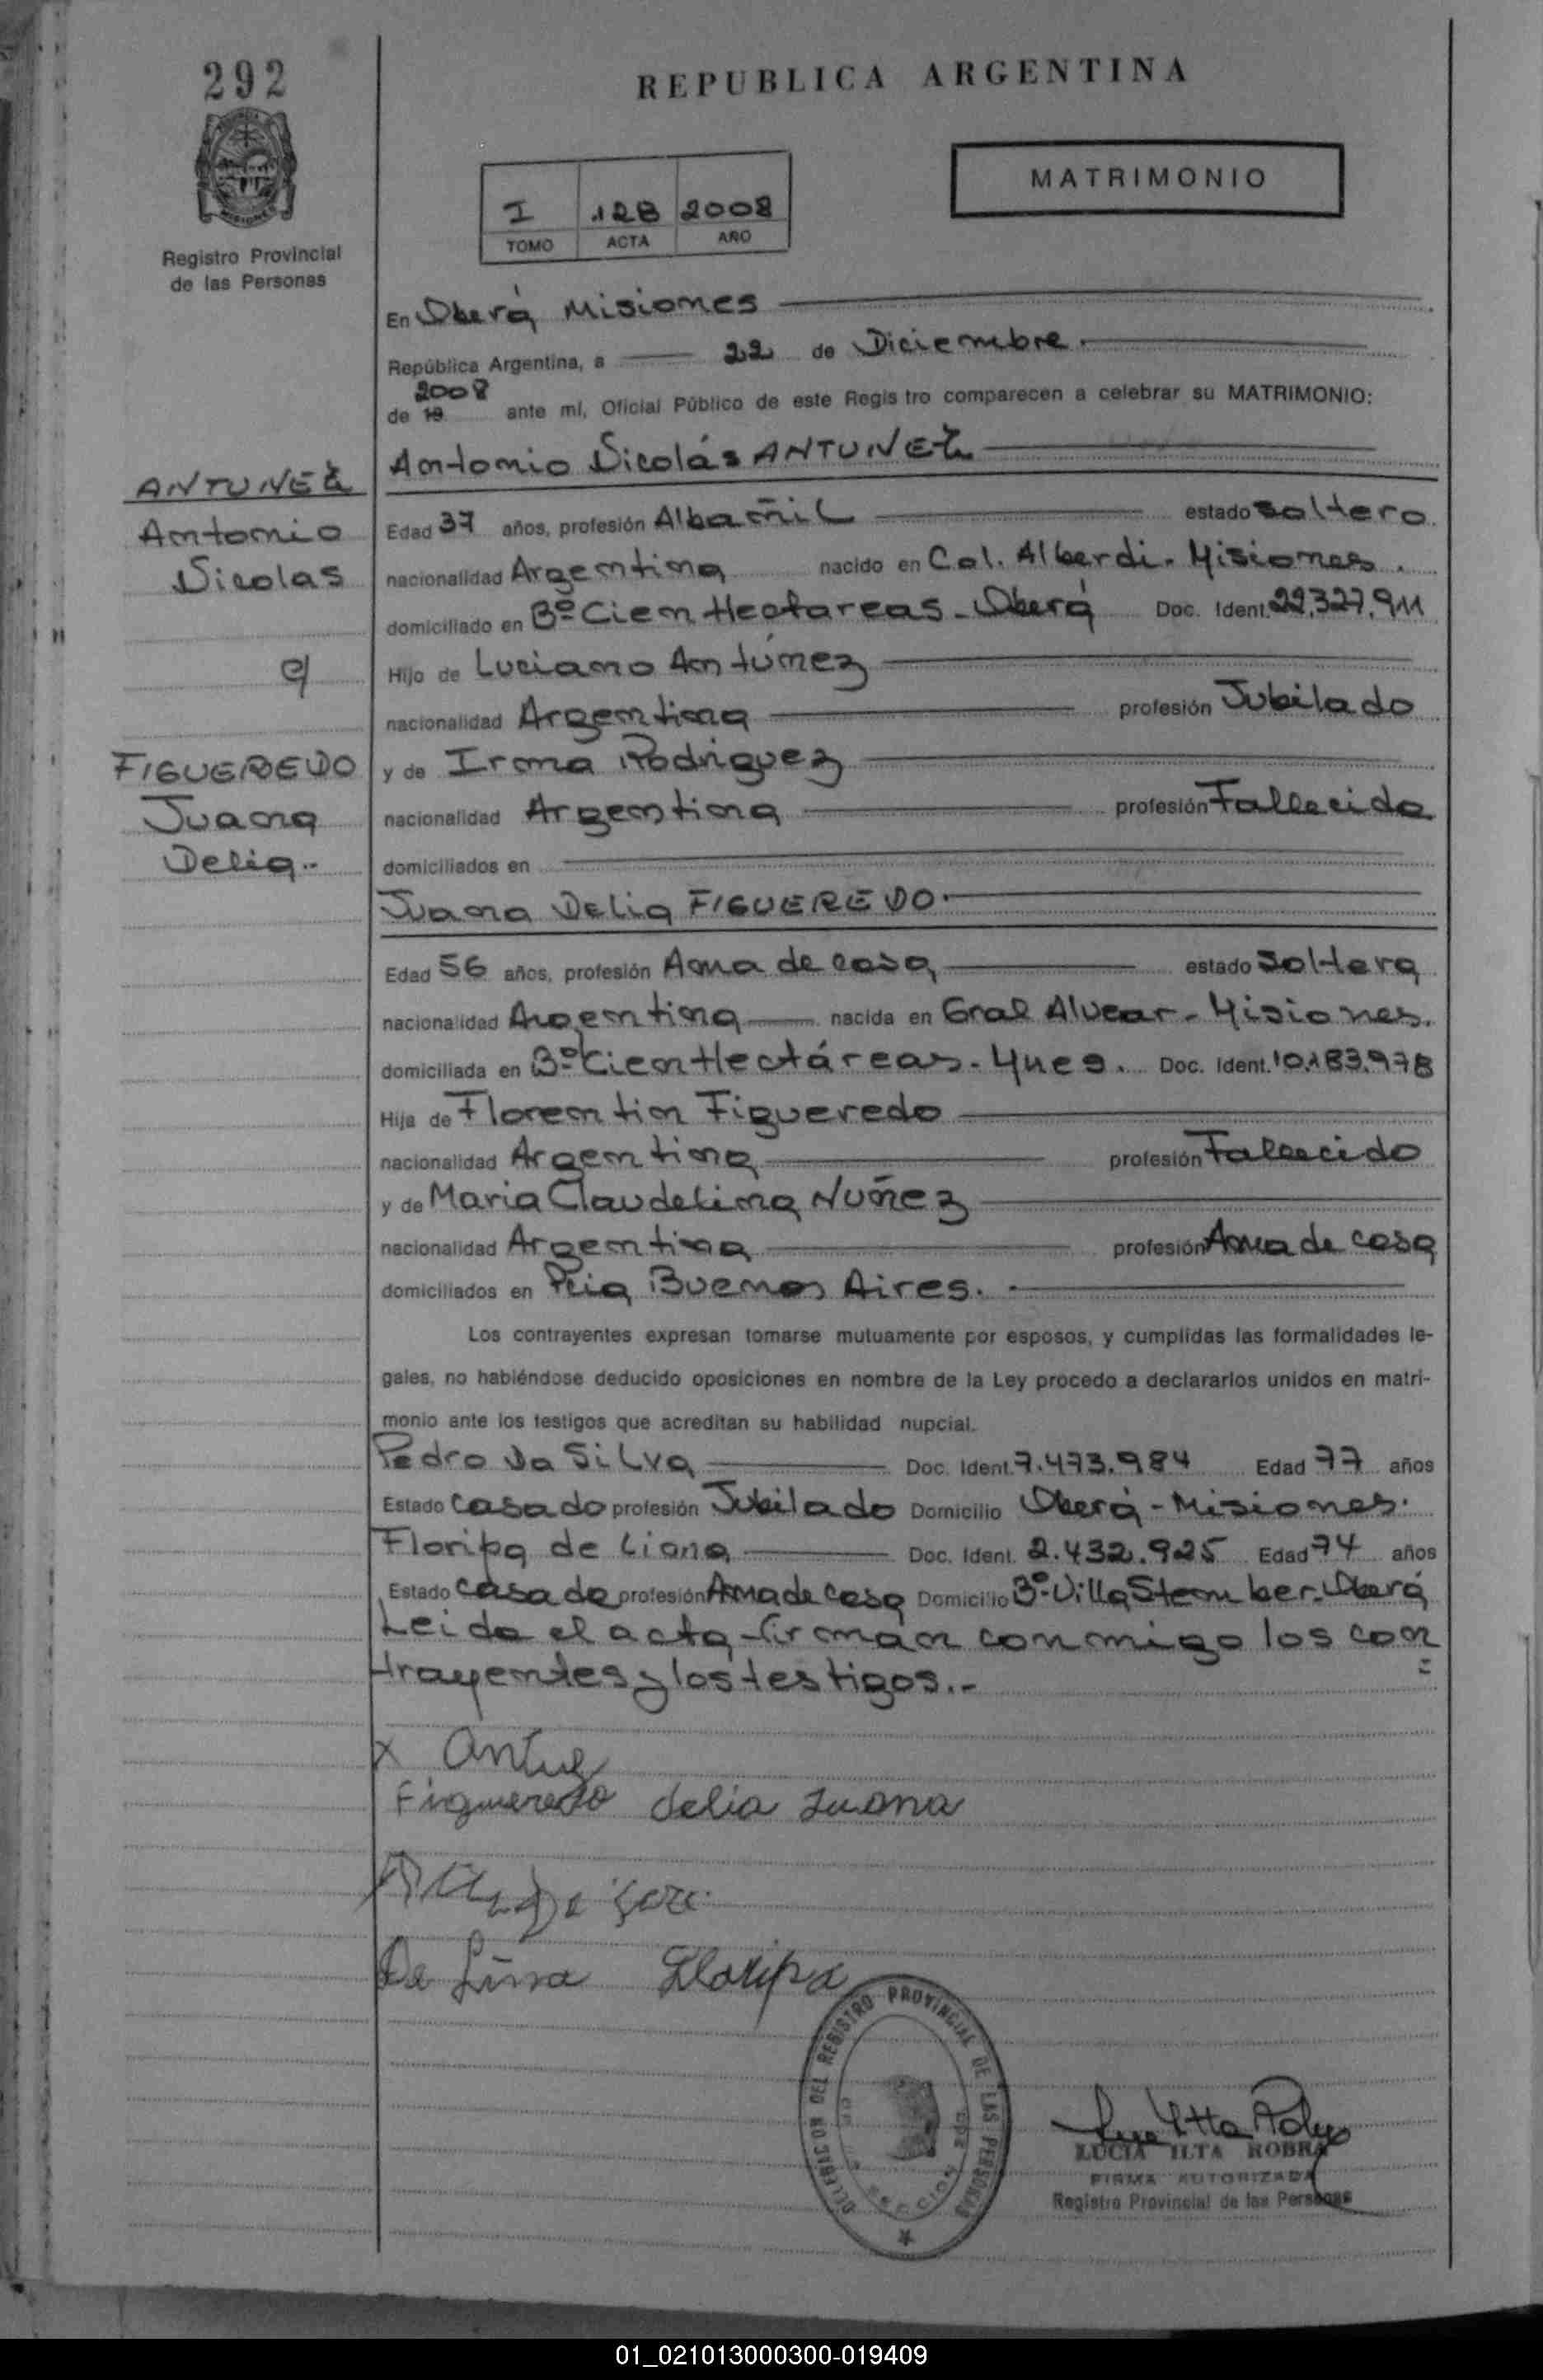 292
REPUBLICA ARGENTINA
MATRIMONIO
I 128 2008
TOMO ACTA AÑO
Registro Provincial
de las Personas
En Oberá Misiones
República Argentina, a 22 de Diciembre.
2008
de 19 ante mí, Oficial Público de este Regis tro comparecen a celebrar su MATRIMONIO:
Antonio Nicolás ANTUNEZ
ANTUNEZ
Antonio
Nicolas
c/
FIGUEREDO
Juana
Delia.-
Edad 37 años, profesión Albañil estado soltero
nacionalidad Argentina nacido en Col. Alberdi. Misiones.
domiciliado en Bº Cien Hectareas - Oberá Doc. Ident. 22.327.911
Hijo de Luciano Antúnez
nacionalidad Argentina profesión Jubilado
y de Irma Rodriguez
nacionalidad Argentina profesión Fallecida
domiciliados en
Juana Delia FIGUEREDO.
Edad 56 años, profesión Ama de casa estado soltera
nacionalidad Argentina nacida en Gral Alvear - Misiones.
domiciliada en Bº Cien Hectáreas - Mnes. Doc. Ident. 10.183.978
Hija de Florentin Figueredo
nacionalidad Argentina profesión Fallecido
y de Maria Claudelina Nuñez
nacionalidad Argentina profesión Ama de casa
domiciliados en Pcia Buenos Aires.
Los contrayentes expresan tomarse mutuamente por esposos, y cumplidas las formalidades le-
gales, no habiéndose deducido oposiciones en nombre de la Ley procedo a declararlos unidos en matri-
monio ante los testigos que acreditan su habilidad nupcial.
Pedro Da Silva Doc. Ident. 7.473.984 Edad 77 años
Estado casado profesión Jubilado Domicilio Oberá - Misiones.
Floripa de Lima Doc. Ident. 2.432.925 Edad 74 años
Estado casada profesión Ama de casa Domicilio Bº Villa Stember. Oberá
Leida el acta firman conmigo los con
=
trayentes y los testigos.-
x
Figueredo delia Juana
De Lima Floripa
DELEGACION DEL REGISTRO PROVINCIAL DE LAS PERSONAS
LUCIA ILTA ROBRA
FIRMA AUTORIZADA
Registro Provincial de las Personas
01_021013000300-019409